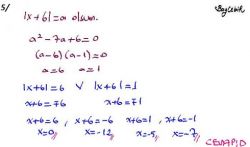 5/
|x+6|=a olsun.
a²-7a+6=0
(a-6)(a-1)=0
a=6 a=1
|x+6|=6 ∨ |x+6|=1
x+6=∓6 x+6=∓1
x+6=6, x+6=-6 x+6=1, x+6=-1
x=0 x=-12 x=-5 x=-7
CEVAP:D